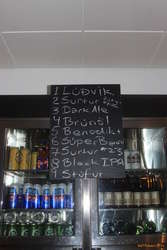 1 Lúðvik
2 Surtur
3 Dark Ale
4 Brúnó!
5 Benedikt
6 Súper B
7 Surtur
8 Black IPA
9 Stúfur